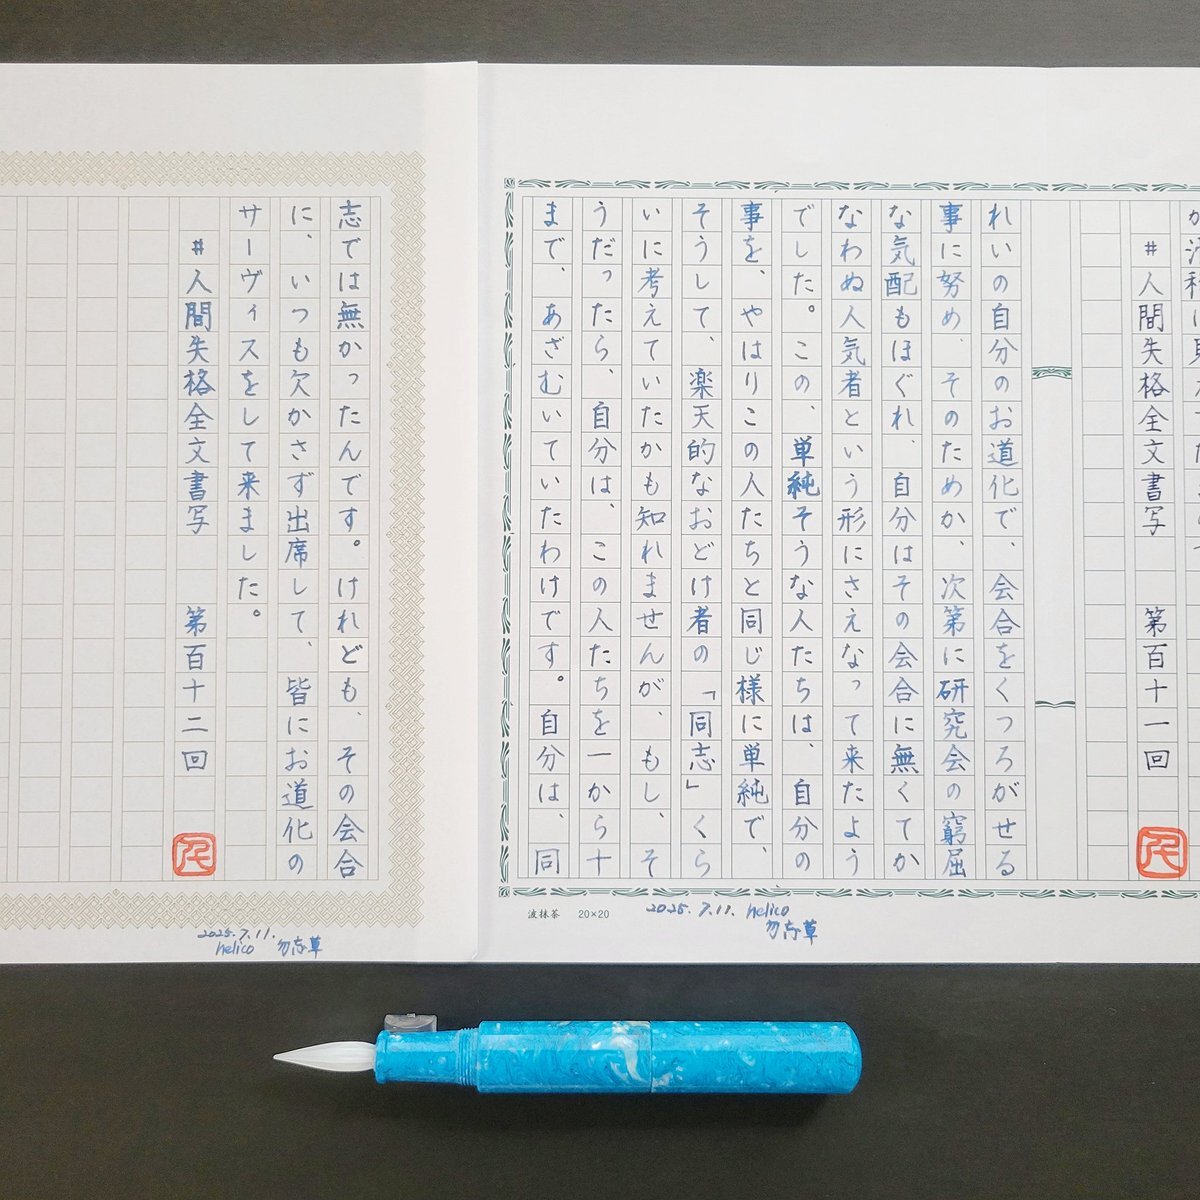 #人間失格全文書写　第百十一回
れいの自分のお道化で、会合をくつろがせる
事に努め、そのためか、次第に研究会の窮屈
な気配もほぐれ、自分はその会合に無くてか
なわぬ人気者という形にさえなって来たよう
でした。この、単純そうな人たちは、自分の
事を、やはりこの人たちと同じ様に単純で、
そうして、楽天的なおどけ者の「同志」くら
いに考えていたかも知れませんが、もし、そ
うだったら、自分は、この人たちを一から十
まで、あざむいていたわけです。自分は、同
波抹茶 20×20
2025.7.11. helico
勿忘草
志では無かったんです。けれども、その会合
に、いつも欠かさず出席して、皆にお道化の
サーヴィスをして来ました。
#人間失格全文書写　第百十二回
2025.7.11.
helico 勿忘草